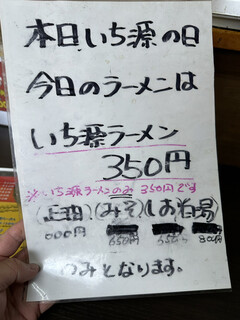 本日いち源の日
今日のラーメンは
いち源ラーメン
350円
※いち源ラーメンのみ 350円です
(みそ)
650円 550 800円
のみとなります。